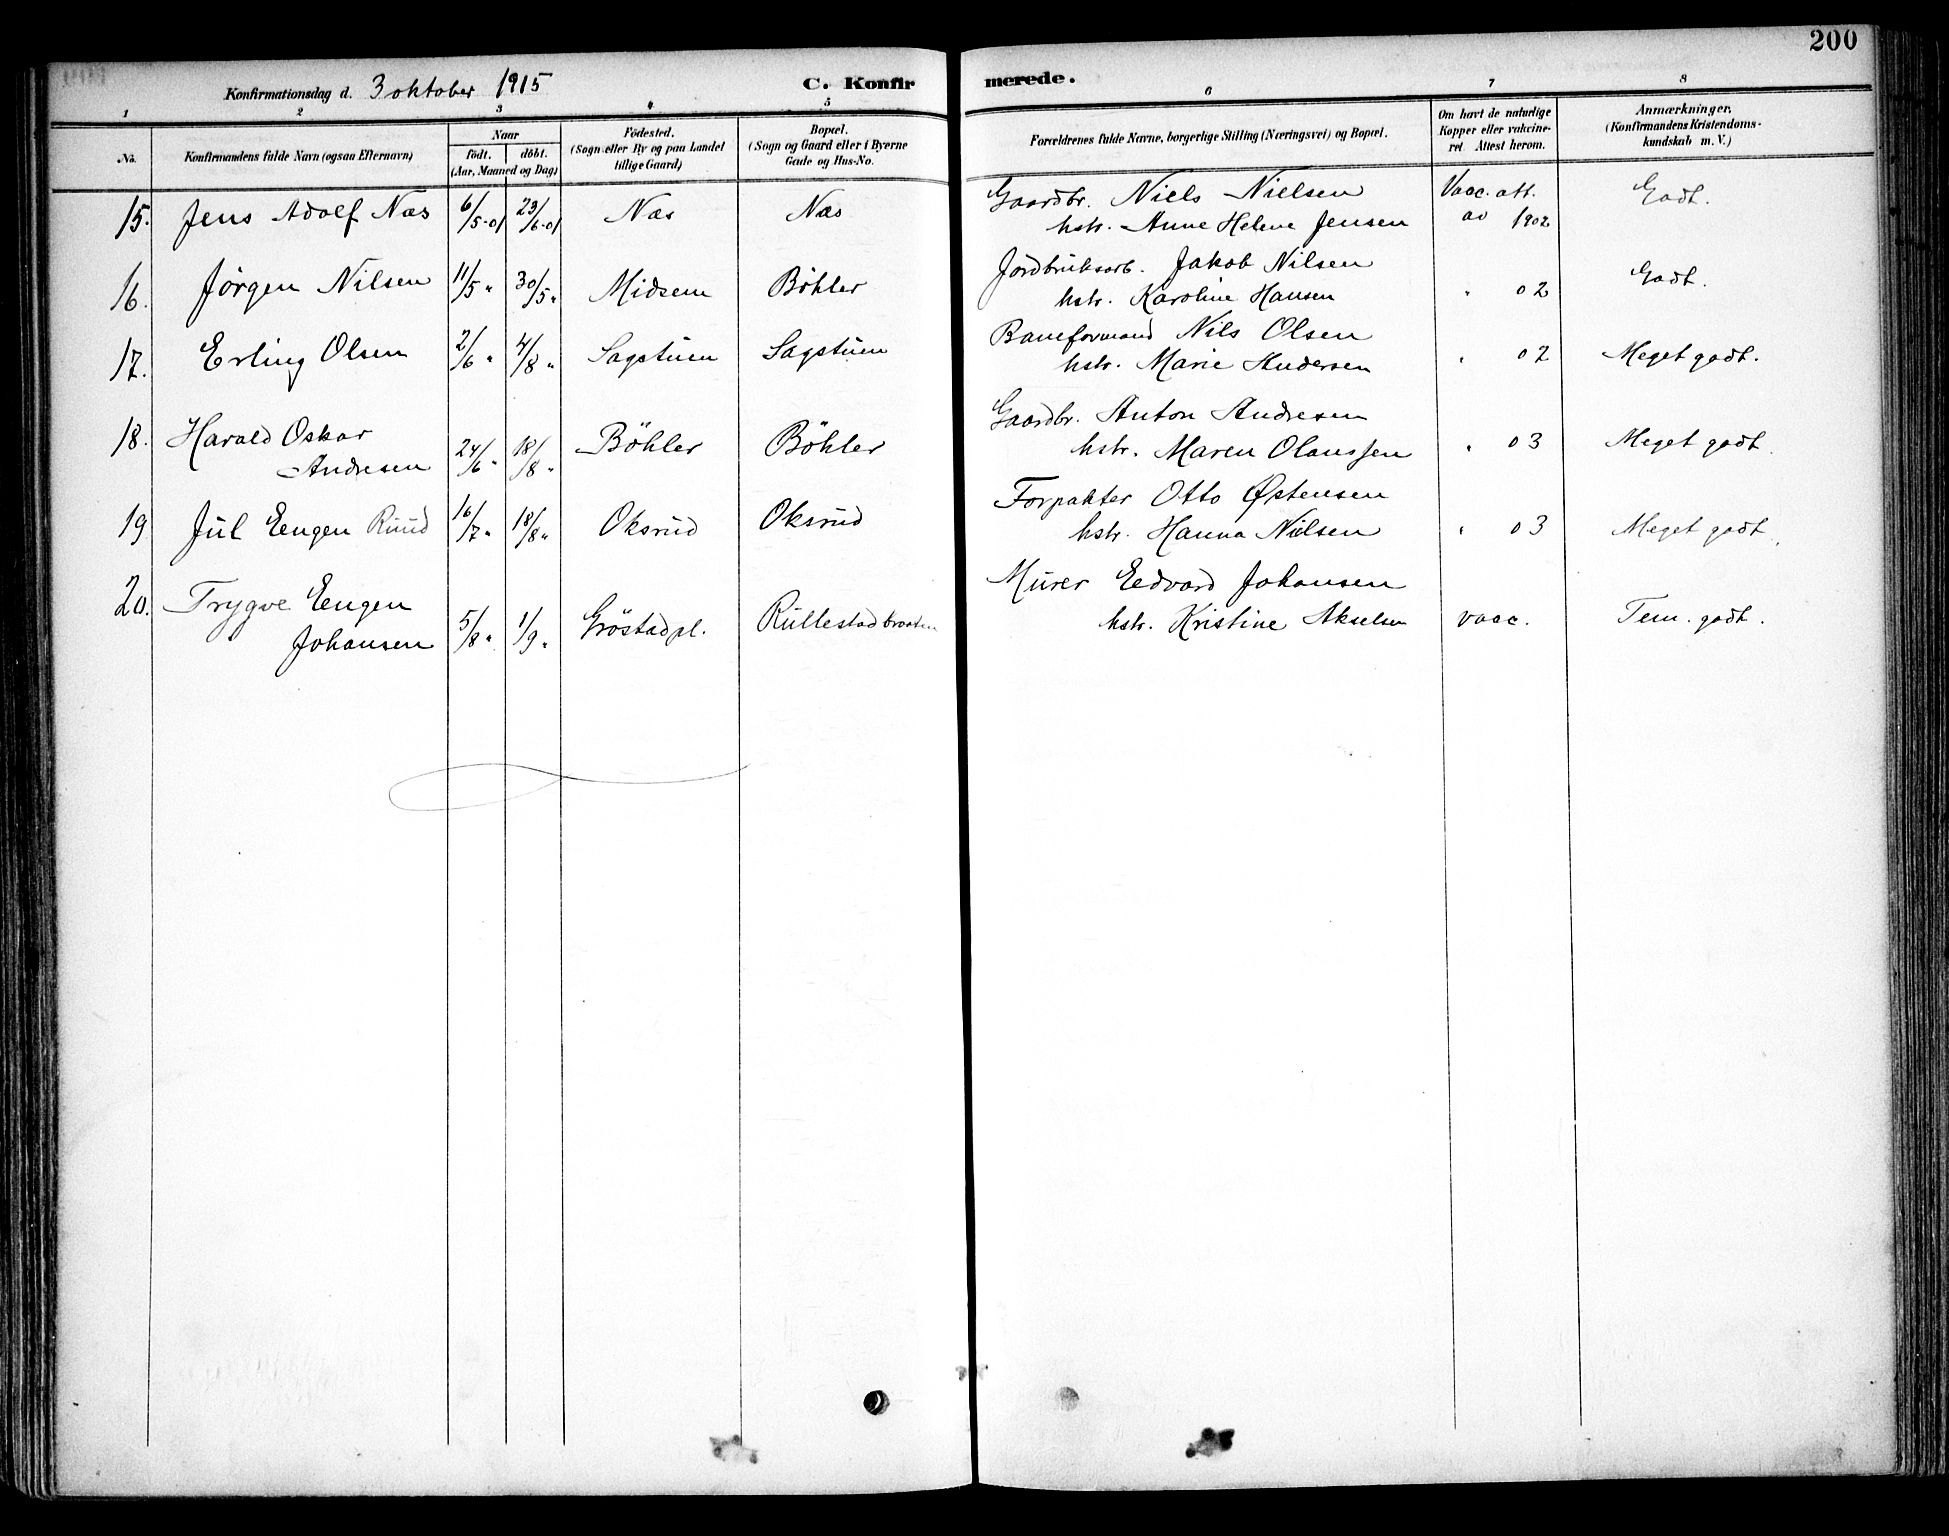 200
Konfirmationsdag d. 3 oktober 1915
C. Konfirmerede.
1 2 3 4 5 6 7 8
No. Konfirmandens fulde Navn (ogsaa Efternavn)
Naar
födt. döbt.
(Aar, Maaned og Dag)
Födested.
(Sogn eller By og paa Landet
tillige Gaard)
Bopæl.
(Sogn og Gaard eller i Byerne
Gade og Hus-No.
Forældrenes fulde Navne, borgerlige Stilling (Næringsvei) og Bopæl.
Om havt de naturlige
Kopper eller vakcine-
ret. Attest herom.
Anmærkninger.
(Konfirmandens Kristendoms-
kundskab m. V.)
15. Jens Adolf Næs 6/5-01 23/6-01 Næs Næs Gaardbr. Niels Nielsen Vacc. att. Godt.
hstr. Anne Helene Jensen av 1902
16. Jörgen Nilsen 11/5 " 30/5 " Midsem Böhler Jordbruksarb. Jakob Nilsen Godt.
hstr. Karoline Hansen " 02
17. Erling Olsen 2/6 " 4/8 " Sagstuen Sagstuen Baneformand Nils Olsen
hstr. Marie Andersen " 02 Meget godt.
18. Harald Oskar Gaardbr. Anton Andresen
Andresen 24/6 " 18/8 " Böhler Böhler hstr. Maren Olaussen " 03 Meget godt.
19 Jul Eengen Ruud 16/7 " 18/8 " Oksrud Oksrud Forpakter Otto Østensen
hstr. Hanna Nielsen " 03 Meget godt.
20. Trygve Eengen Murer Eedvard Johansen
Johansen 5/8 " 1/9 " Gröstadpl. Rullestadbraaten hstr. Kristine Akselsen vacc. Tem. godt.